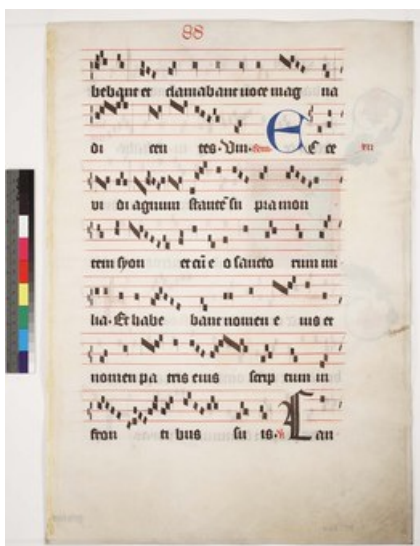 88
bebant et clamabant uoce mag na
di cen tes. Vin. E c ce vii
vi di agnum stante su pra mon
tem syon et cu e o sancto rum mi
lia. Et habe bant nomen e ius et
nomen pa tris eius scrip tum in
fron ti bus su is. Lau